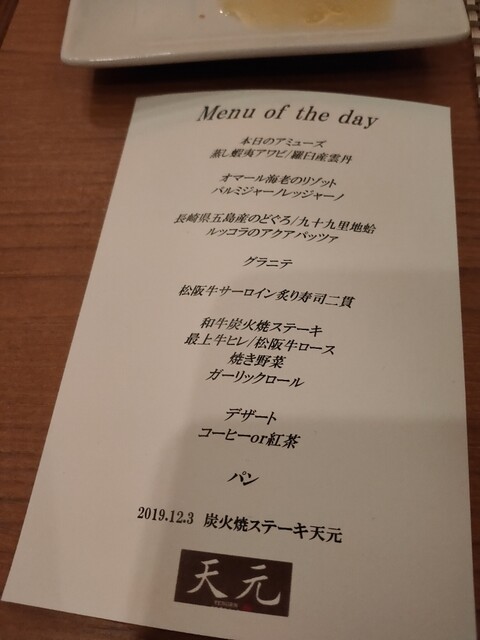 Menu of the day
本日のアミューズ
蒸し蝦夷アワビ/羅臼産雲丹
オマール海老のリゾット
パルミジャーノレッジャーノ
長崎県五島産のどぐろ/九十九里地蛤
ルッコラのアクアパッツァ
グラニテ
松阪牛サーロイン炙り寿司二貫
和牛炭火焼ステーキ
最上牛ヒレ/松阪牛ロース
焼き野菜
ガーリックロール
デザート
コーヒーor紅茶
パン
2019.12.3 炭火焼ステーキ天元
天元
TENGEN